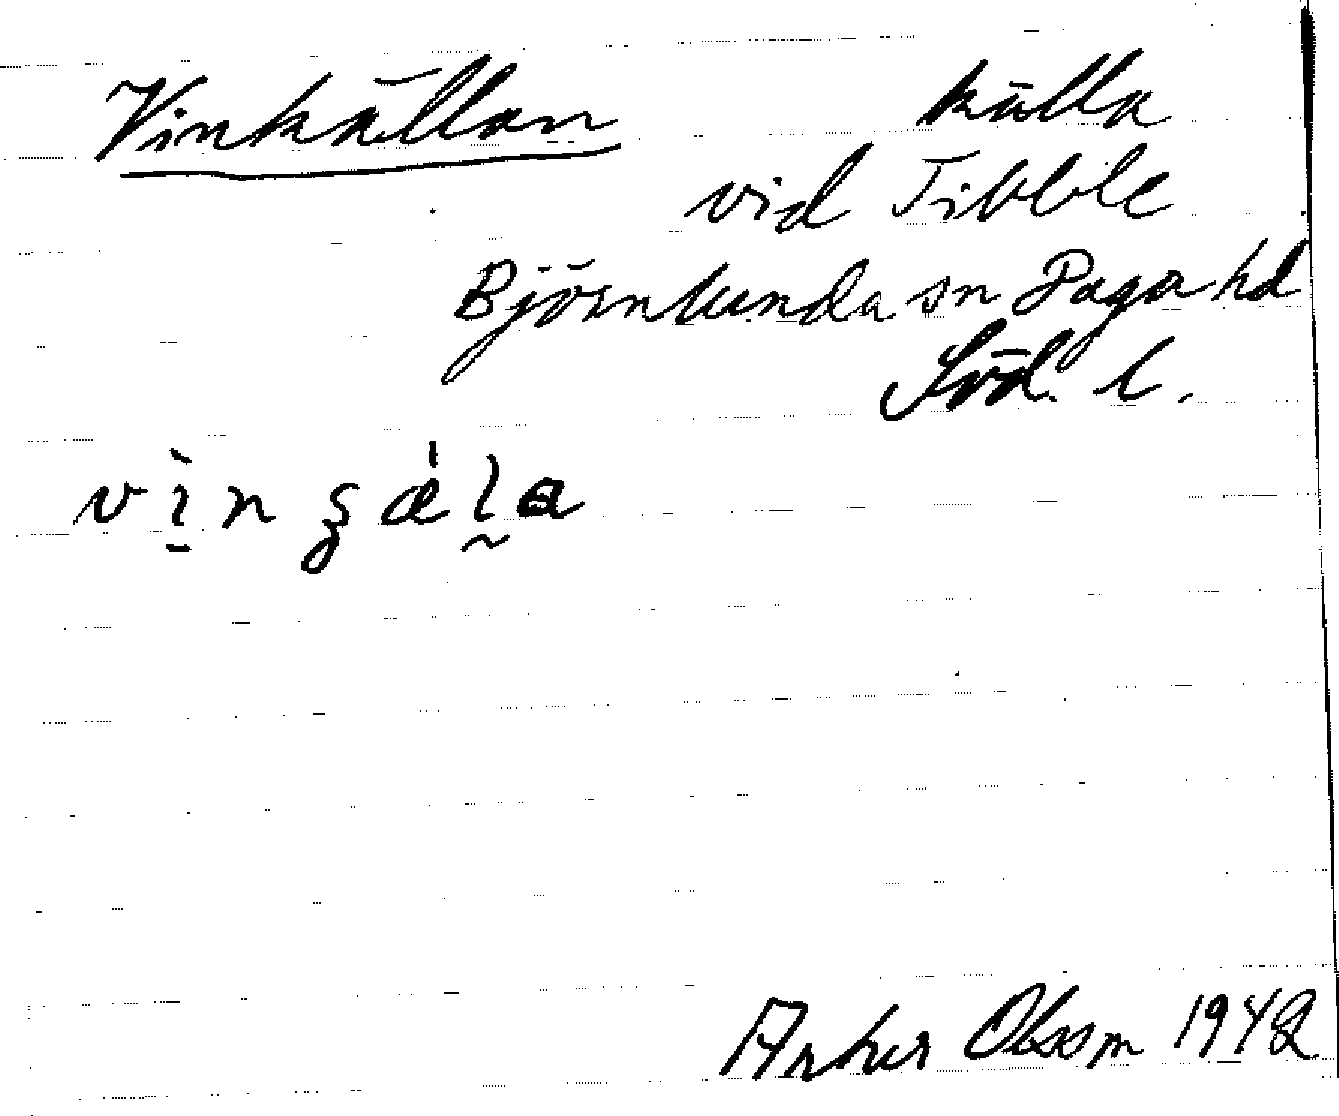 Vinkällan källa
vid Tibble
Björnlunda sn Daga hd
Söd. l.
Artur Olsson 1942